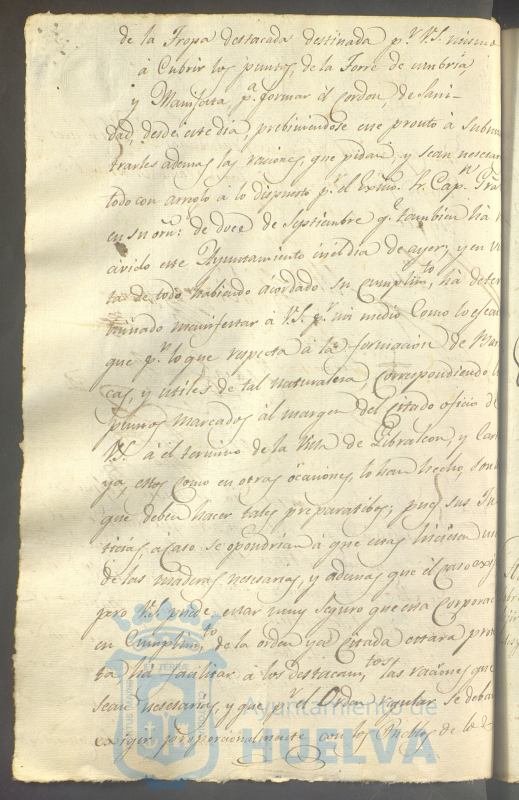 de la Tropa destacada destinada p.r V.S. mismo
à Cubrir los puntos, de la Torre de umbria
y Manifeta, p.a formar el Cordon, de Sani-
dad, desde este dia, prebiniendose este pronto à submi
trarles ademas, las raciones, que pidan, y sean nesesar
todo con arreglo à lo dispuesto p.r el Exmo. Sr. Cap.n Gral
en su orn: de doce de Septiembre q.e tambien ha
civido este Ayuntamiento en el dia de ayer; y en vis
ta de todo, habiendo acordado su cumplim.to, hà deter
minado manifestar à V.S. p.r mi medio Como lo efecu
que p.r lo que respecta à la formacion de Barra
cas, y utiles de tal naturalesa, correspondiendo l
puntos marcados àl margen del citado oficio de
V.S. à el termino de la Villa de Gibraleon, y Carta
ya, estos como en otras ocaciones, lo han hecho, son l
que deben hacer tales preparatibos; pues sus Jus
ticias, acaso se opondrian à que estas hiciesen uso
de las maderas nesesarias, y ademas que el caso exij
pero V.S. puede estar muy seguro que esta Corporac
en Cumplim.to de la orden yà citada estara pron
ta hà facilitar à los destacam.tos las raciones que
sean nesesarias, y que p.r el Orden regular se deban
exijir proporcionalmente con los Pueblos de la
Ayuntamiento de
HUELVA